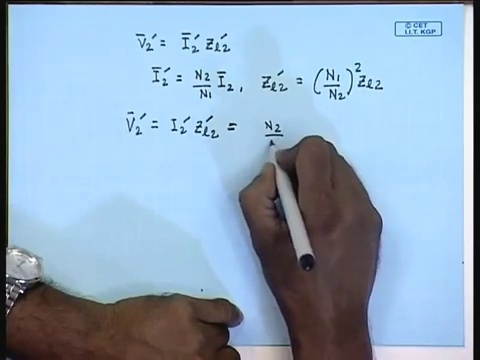 © CET
I.I.T. KGP
V̄₂′ = Ī₂′ Zℓ₂′
Ī₂′ = N₂/N₁ Ī₂, Zℓ₂′ = (N₁/N₂)² Zℓ₂
V̄₂′ = I₂′ Zℓ₂′ = N₂/